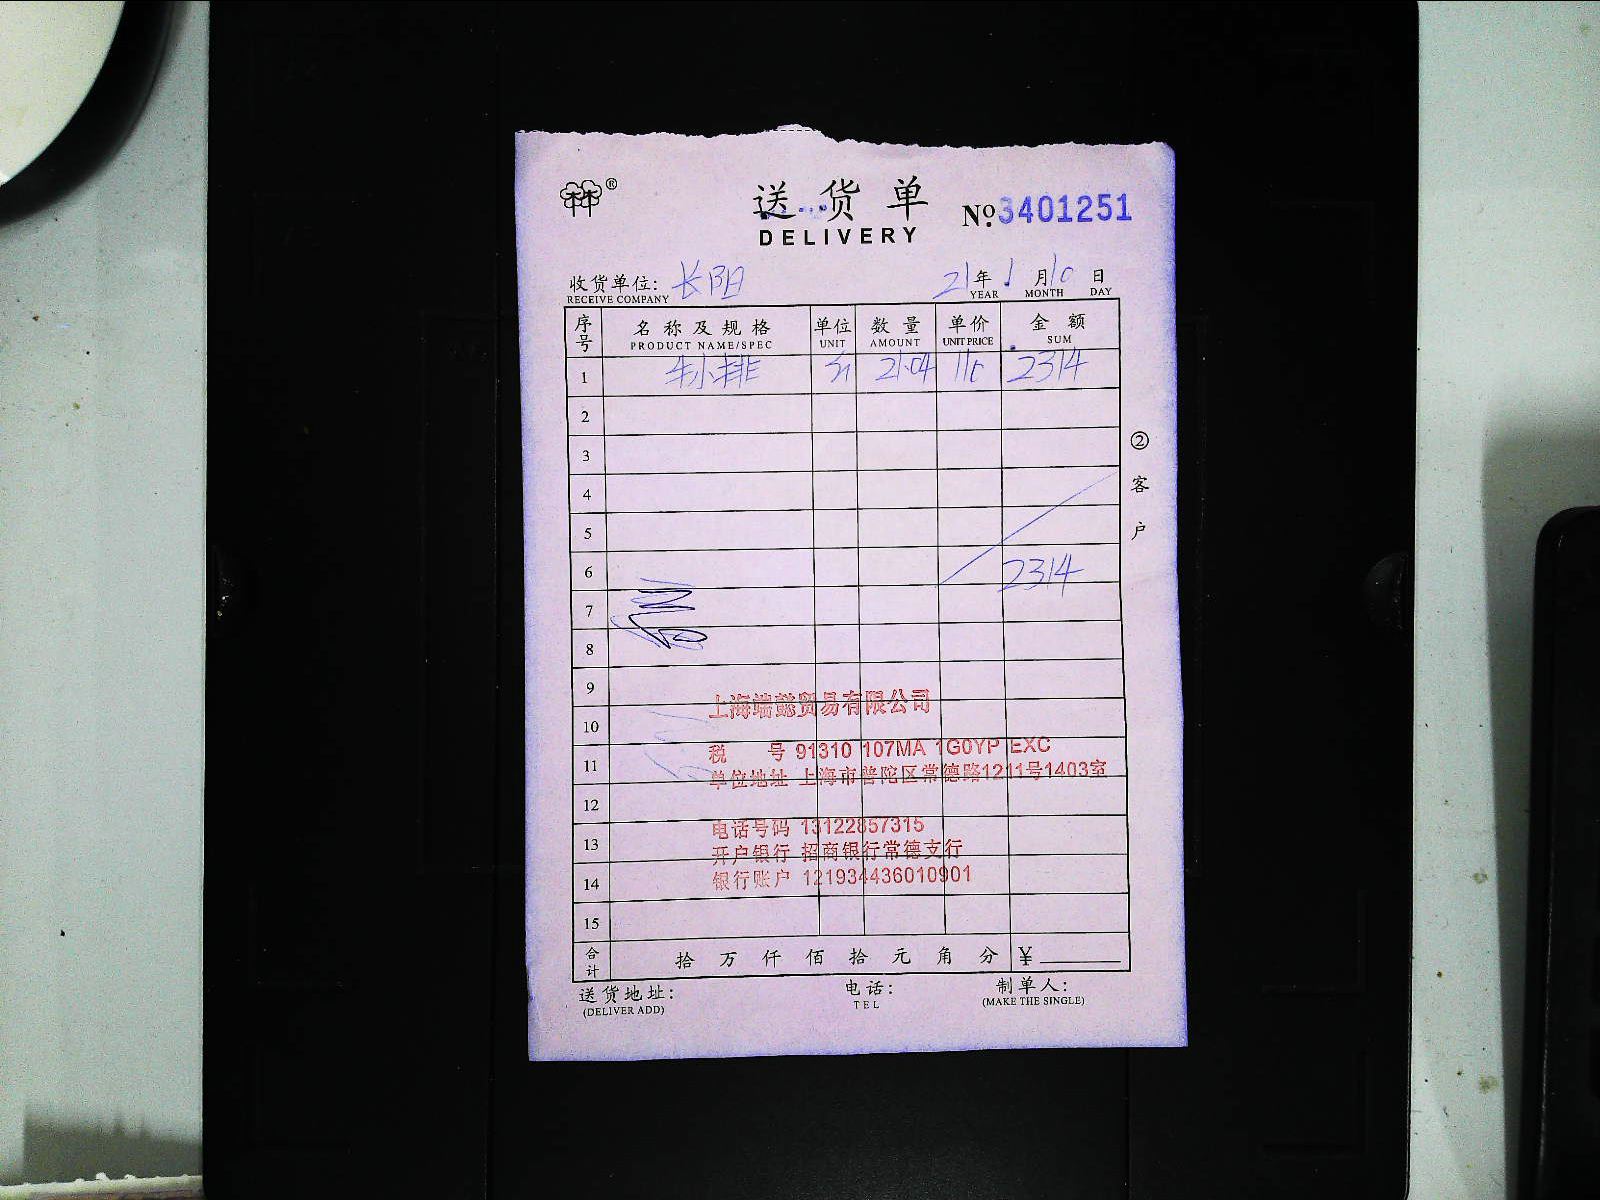 ® 送货单 №3401251
DELIVERY
收货单位: 长阳 21年 1月10日
RECEIVE COMPANY YEAR MONTH DAY
序号 名称及规格 单位 数量 单价 金额
PRODUCT NAME/SPEC UNIT AMOUNT UNIT PRICE SUM
1 牛小排 斤 21.04 110 2314
2
3
4
5
6 2314
7
8
9
上海端懿贸易有限公司
10
税 号 91310 107MA 1G0YP EXC
11
单位地址 上海市普陀区常德路1211号1403室
12
电话号码 13122857315
13
开户银行 招商银行常德支行
14 银行账户 121934436010901
15
合计 拾 万 仟 佰 拾 元 角 分 ¥
送货地址: 电话: 制单人:
(DELIVER ADD) TEL (MAKE THE SINGLE)
② 客户